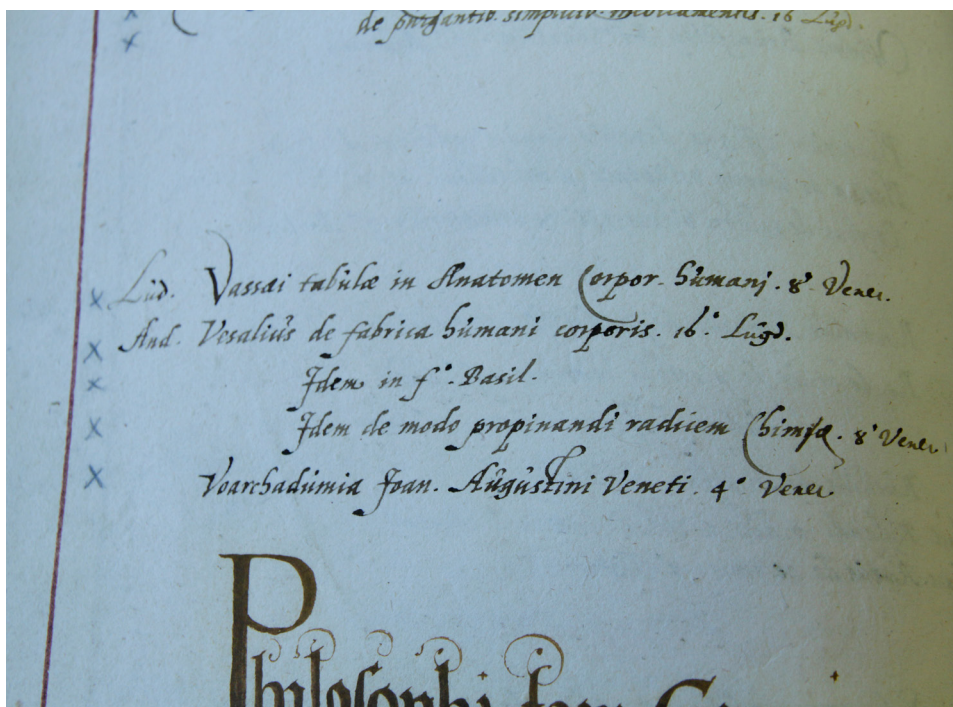 de purgantib. simplicib. medicamentis. 16 Lugd.
Lud. Vassæi tabulæ in Anatomen Corpor. humanj. 8° Venet.
And. Vesalius de fabrica humani corporis. 16.° Lugd.
Idem in f°. Basil.
Idem de modo propinandi radicem Chimsæ. 8° Venet
Voarchadumia Joan. Augustini Veneti. 4° Venet
Philosophi